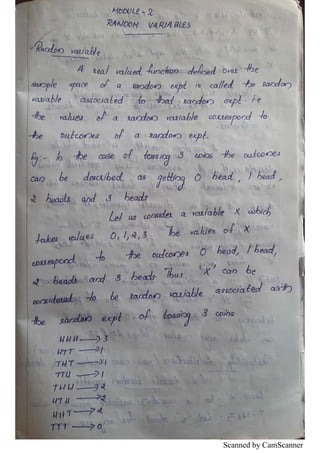 MODULE - 2
RANDOM VARIABLES
Random variable
A real valued function defined over the
sample space of a random expt is called the random
variable associated to that random expt. i.e
the values of a random variable correspond to
the outcomes of a random expt.
Eg:- In the case of tossing 3 coins the outcomes
can be described as getting 0 head, 1 head,
2 heads and 3 heads
Let us consider a variable X which
takes values 0, 1, 2, 3 The values of X
correspond to the outcomes 0 head, 1 head,
2 heads and 3 heads. Thus "X" can be
considered to be random variable associated with
the random expt of tossing 3 coins
HHH → 3
HTT → 1
THT → 1
TTH → 1
THH → 2
HTH → 2
HHT → 2
TTT → 0
Scanned by CamScanner